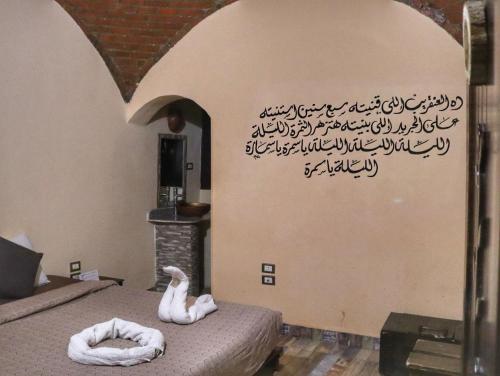 ده العنقريب اللى قنيته سبع سنين استنيته
على الجريد اللى بنيته هتزهر التمرة الليلة
الليلة الليلة الليلة ياسمرة ياسمارة
الليلة ياسمرة